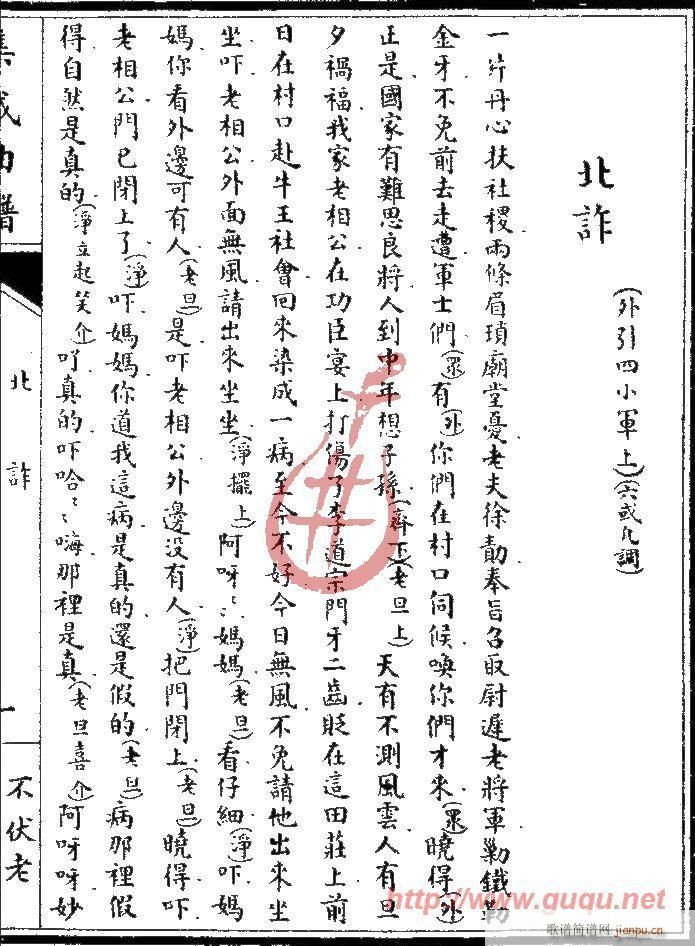 北詐
(外引四小軍上)(六或凡調)
一片丹心扶社稷兩條眉瑣廟堂憂老夫徐勣奉旨召取尉遲老將軍勦鐵勒
金牙不免前去走遭軍士們(衆)有(外)你們在村口伺候喚你們才來(衆)曉得(外)
正是國家有難思良將人到中年想子孫(齊下)(老旦上)天有不測風雲人有旦
夕禍福我家老相公在功臣宴上打傷了李道宗門牙二齒貶在這田莊上前
日在村口赴牛王社會回來染成一病至今不好今日無風不免請他出來坐
坐吓老相公外面無風請出來坐坐(淨擺上)阿呀〻媽媽(老旦)看仔細(淨)吓媽
媽你看外邊可有人(老旦)是吓老相公外邊沒有人(淨)把門閉上(老旦)曉得吓
老相公門已閉上了(淨)吓媽媽你道我這病是真的還是假的(老旦)病那裡假
得自然是真的(淨立起笑介)吖真的吓哈〻〻嗨那裡是真(老旦喜介)阿呀呀妙
集成曲譜
北詐
一
不伏老
http://www.guqu.net
歌谱简谱网
jianpu.cn